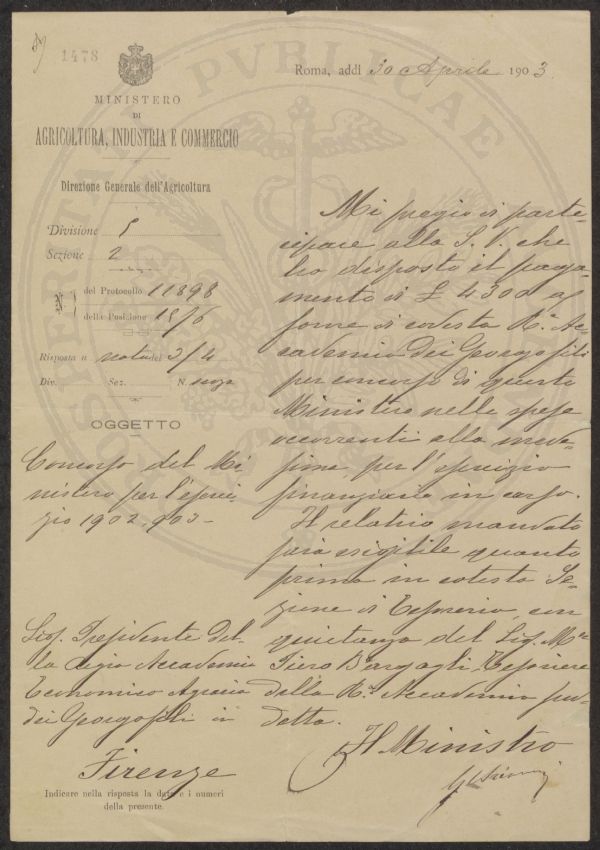 1478
Roma, addì 30 Aprile 1903
MINISTERO
DI
AGRICOLTURA, INDUSTRIA E COMMERCIO
Direzione Generale dell'Agricoltura
Divisione 5
Sezione 2
N. del Protocollo 11898
della Posizione 1876
Risposta a nota del 3/4
Div. Sez. N. senza
OGGETTO
Concorso del Mi-
nistero per l'eserci-
zio 1902-903-
Sig. Presidente del-
la Regia Accademia
Economico Agraria
dei Georgofili in
Firenze
Indicare nella risposta la data e i numeri
della presente.
Mi pregio di parte-
cipare alla S. V. che
ho disposto il paga-
mento di £ 4300 a
favore di codesta R.a Ac-
cademia dei Georgofili
per concorso di questo
Ministero nelle spese
occorrenti alla mede-
sima, per l'esercizio
finanziario in corso.
Il relativo mandato
sarà esigibile quanto
prima in cotesta Se-
zione di Tesoreria, con
quietanza del Sig. M.se
Piero Bargagli, Tesoriere
della R.a Accademia sud-
detta.
Il Ministro